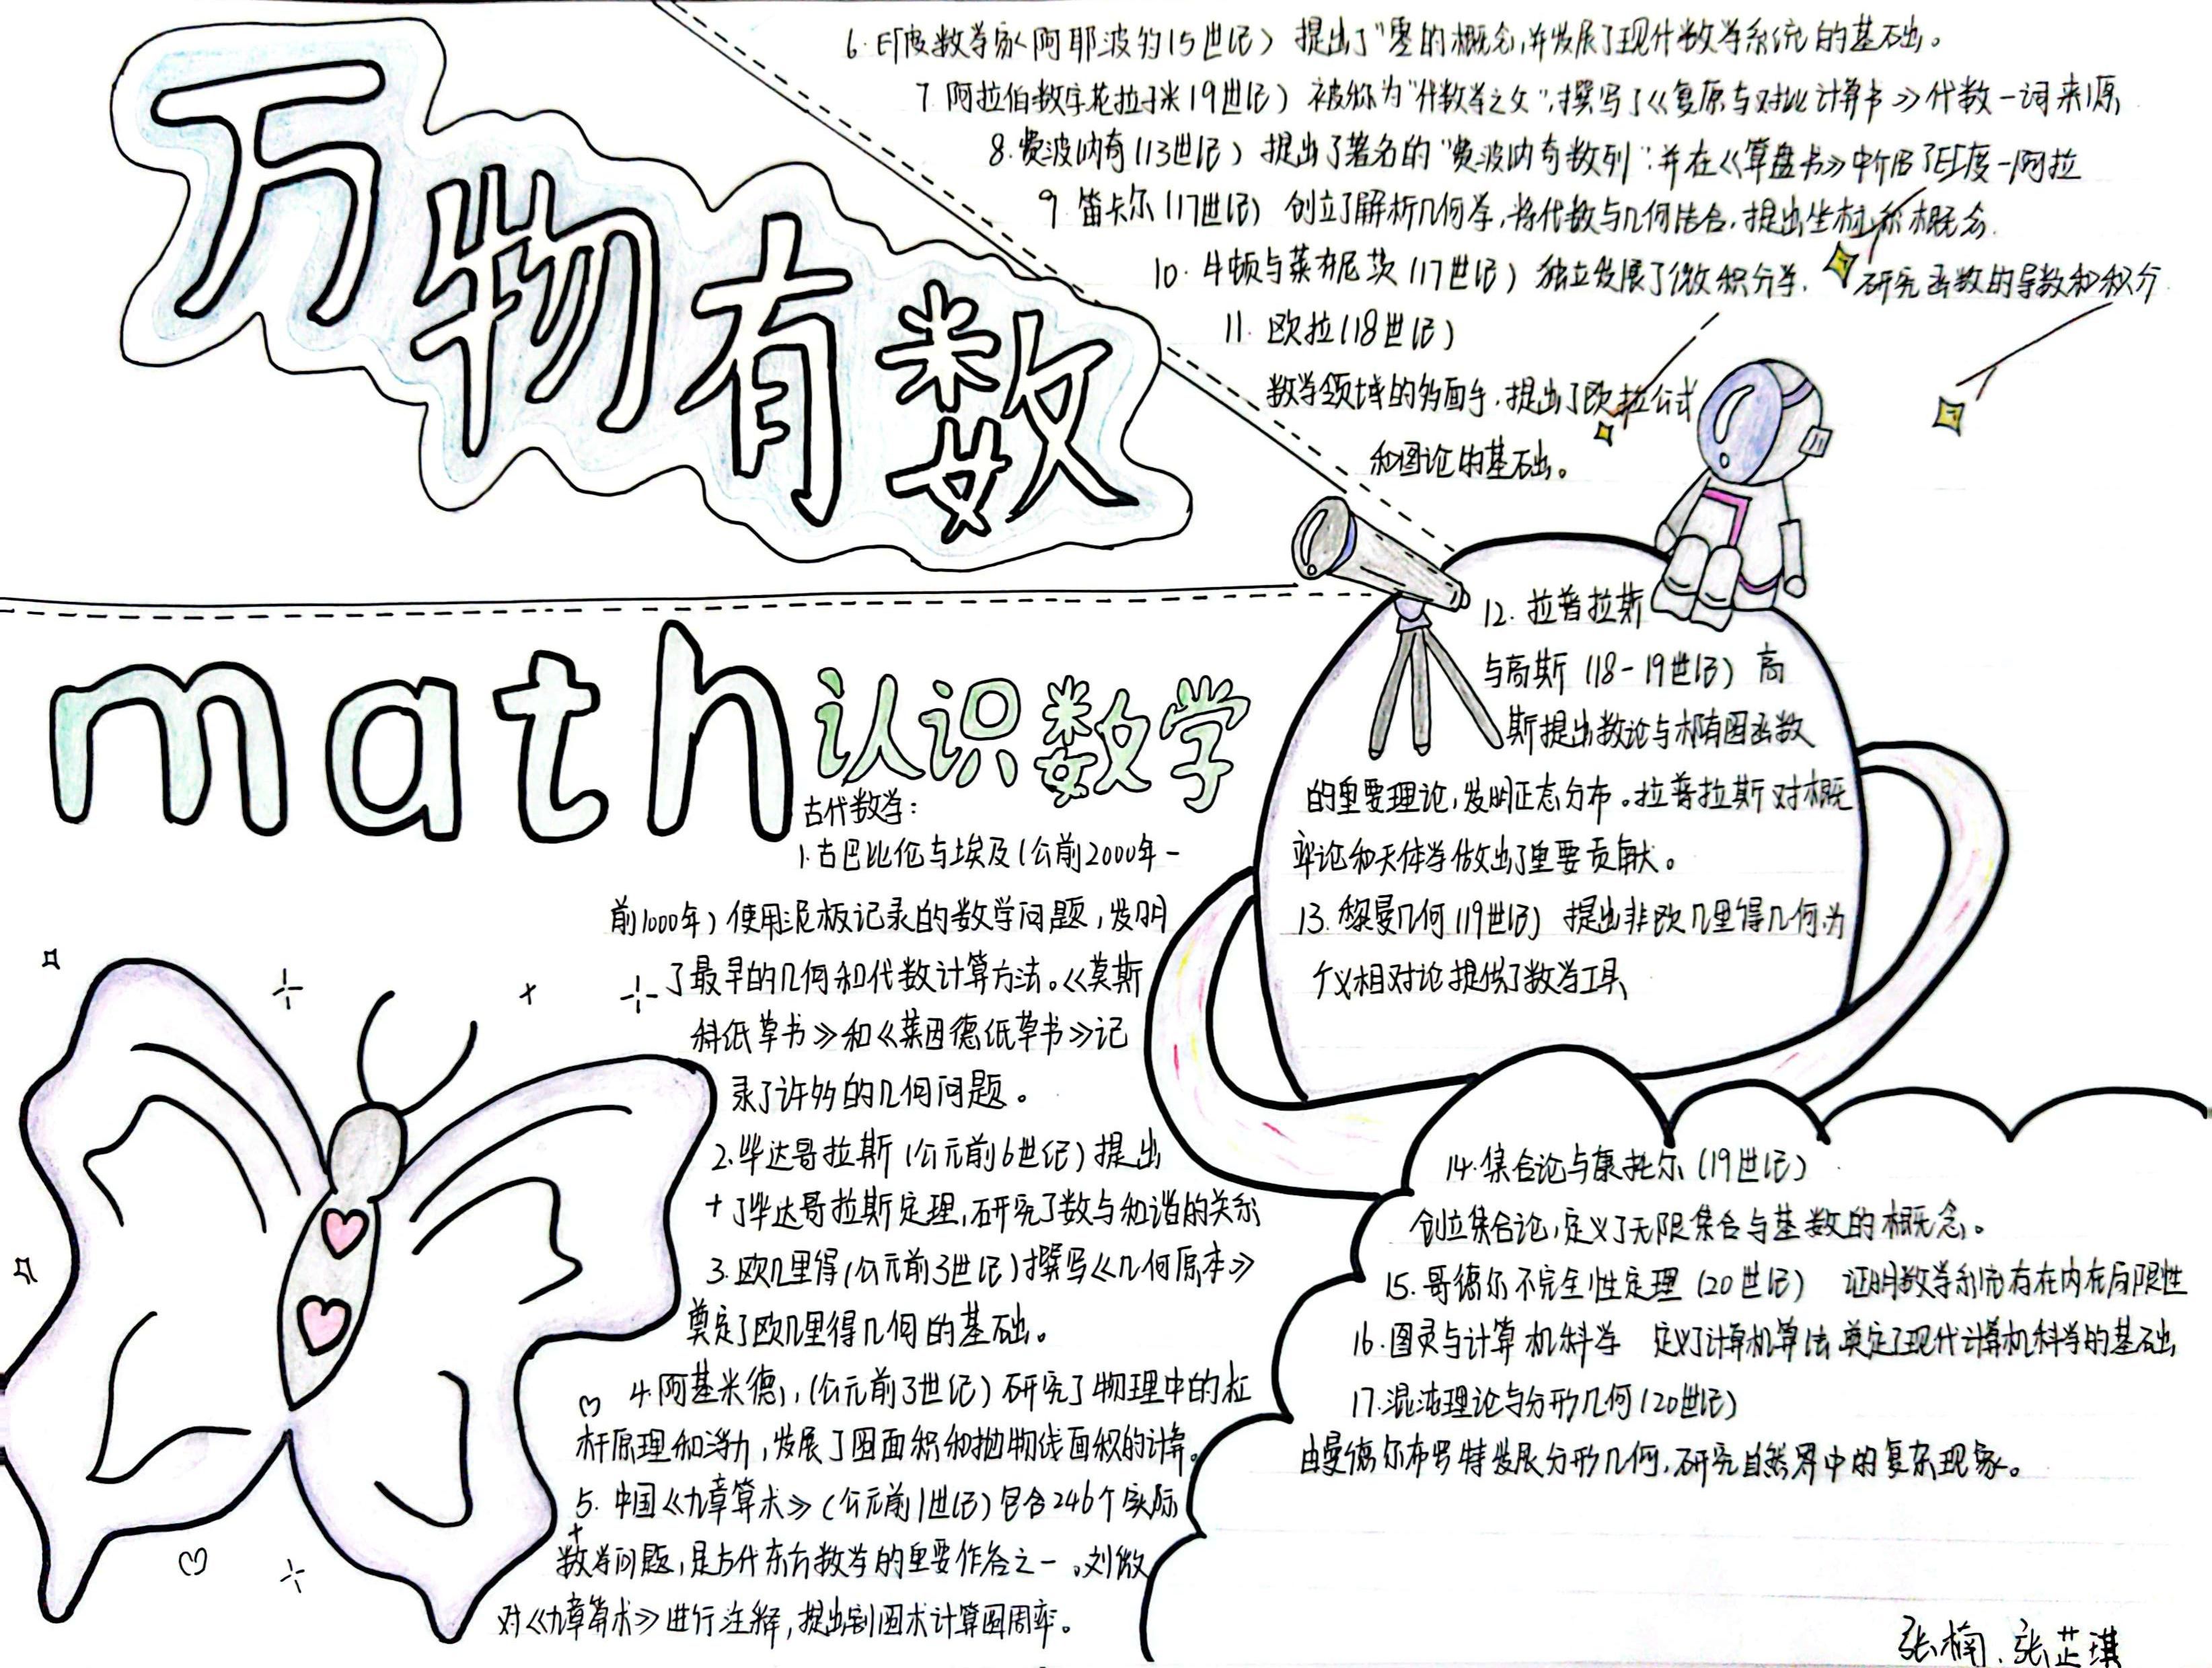 万物有数
6.印度数学家(阿耶波多15世纪) 提出了"零的概念,并发展了现代数学系统的基础。
7 阿拉伯数字花拉子米19世纪) 被称为"代数学之父",撰写了《复原与对比计算书》代数一词来源
8.费波纳奇(13世纪) 提出了著名的"费波纳奇数列",并在《算盘书》中介绍了印度-阿拉
9 笛卡尔(17世纪) 创立了解析几何学,将代数与几何结合,提出坐标系概念.
10.牛顿与莱布尼茨(17世纪) 独立发展了微积分学. 研究函数的导数和积分
11.欧拉(18世纪)
数学领域的多面手,提出了欧拉公式
和图论的基础。
math认识数学
古代数学:
1.古巴比伦与埃及(公前2000年-
前1000年)使用泥板记录的数学问题,发明
了最早的几何和代数计算方法。《莫斯
科纸草书》和《莱因德纸草书》记
录了许多的几何问题。
2.毕达哥拉斯(公元前6世纪)提出
了毕达哥拉斯定理,研究了数与和谐的关系
3.欧几里得(公元前3世纪)撰写《几何原本》
奠定了欧几里得几何的基础。
4.阿基米德,(公元前3世纪)研究了物理中的杠
杆原理和浮力,发展了圆面积和抛物线面积的计算。
5.中国《九章算术》(公元前1世纪)包含246个实际
数学问题,是古代东方数学的重要作名之一。刘徽
对《九章算术》进行注释,提出割圆术计算圆周率。
12.拉普拉斯
与高斯(18-19世纪)高
斯提出数论与椭圆函数
的重要理论,发明正态分布。拉普拉斯对概
率论和天体学做出了重要贡献。
13.黎曼几何(19世纪) 提出非欧几里得几何.为
广义相对论提供了数学工具
14.集合论与康托尔(19世纪)
创立集合论,定义了无限集合与基数的概念。
15.哥德尔不完全性定理(20世纪) 证明数学系统存在内在局限性
16.图灵与计算机科学 定义了计算机算法奠定了现代计算机科学的基础
17.混沌理论与分形几何(20世纪)
由曼德尔布罗特发展分形几何,研究自然界中的复杂现象。
张楠.张芷琪